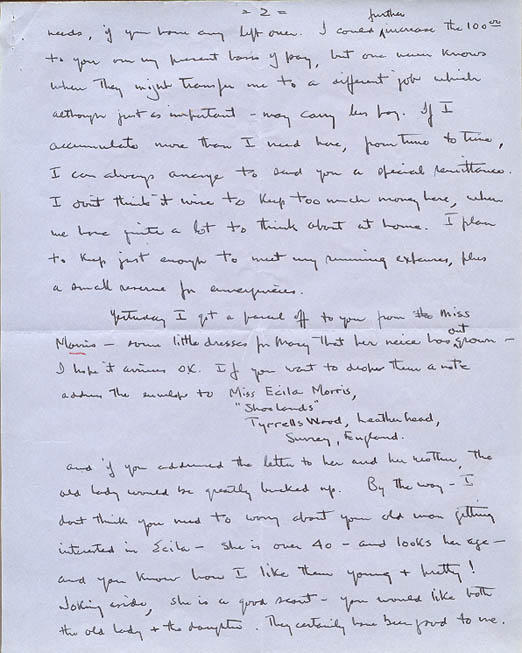 = 2 =
needs, if you have any left over. I could further increase the 100.00
to you on my present basis of pay, but one never knows
when they might transfer me to a different job which
although just as important - may carry less pay. If I
accumulate more than I need here, from time to time,
I can always arrange to send you a special remittance.
I don't think it wise to keep too much money here, when
we have quite a lot to think about at home. I plan
to keep just enough to meet my running expenses, plus
a small reserve for emergencies.
Yesterday I got a parcel off to you from the Miss
Morris - some little dresses for Mary that her neice has out grown -
I hope it arrives OK. If you want to drop them a note
address the envelope to Miss Ecila Morris,
"Shoelands"
Tyrrells Wood, Leatherhead,
Surrey, England.
and if you addressed the letter to her and her mother, the
old lady would be greatly bucked up. By the way - I
dont think you need to worry about your old man getting
interested in Ecila - she is over 40 - and looks her age -
and you know how I like them young + pretty!
Joking aside, she is a good scout - you would like both
the old lady + the daughter. They certainly have been good to me.